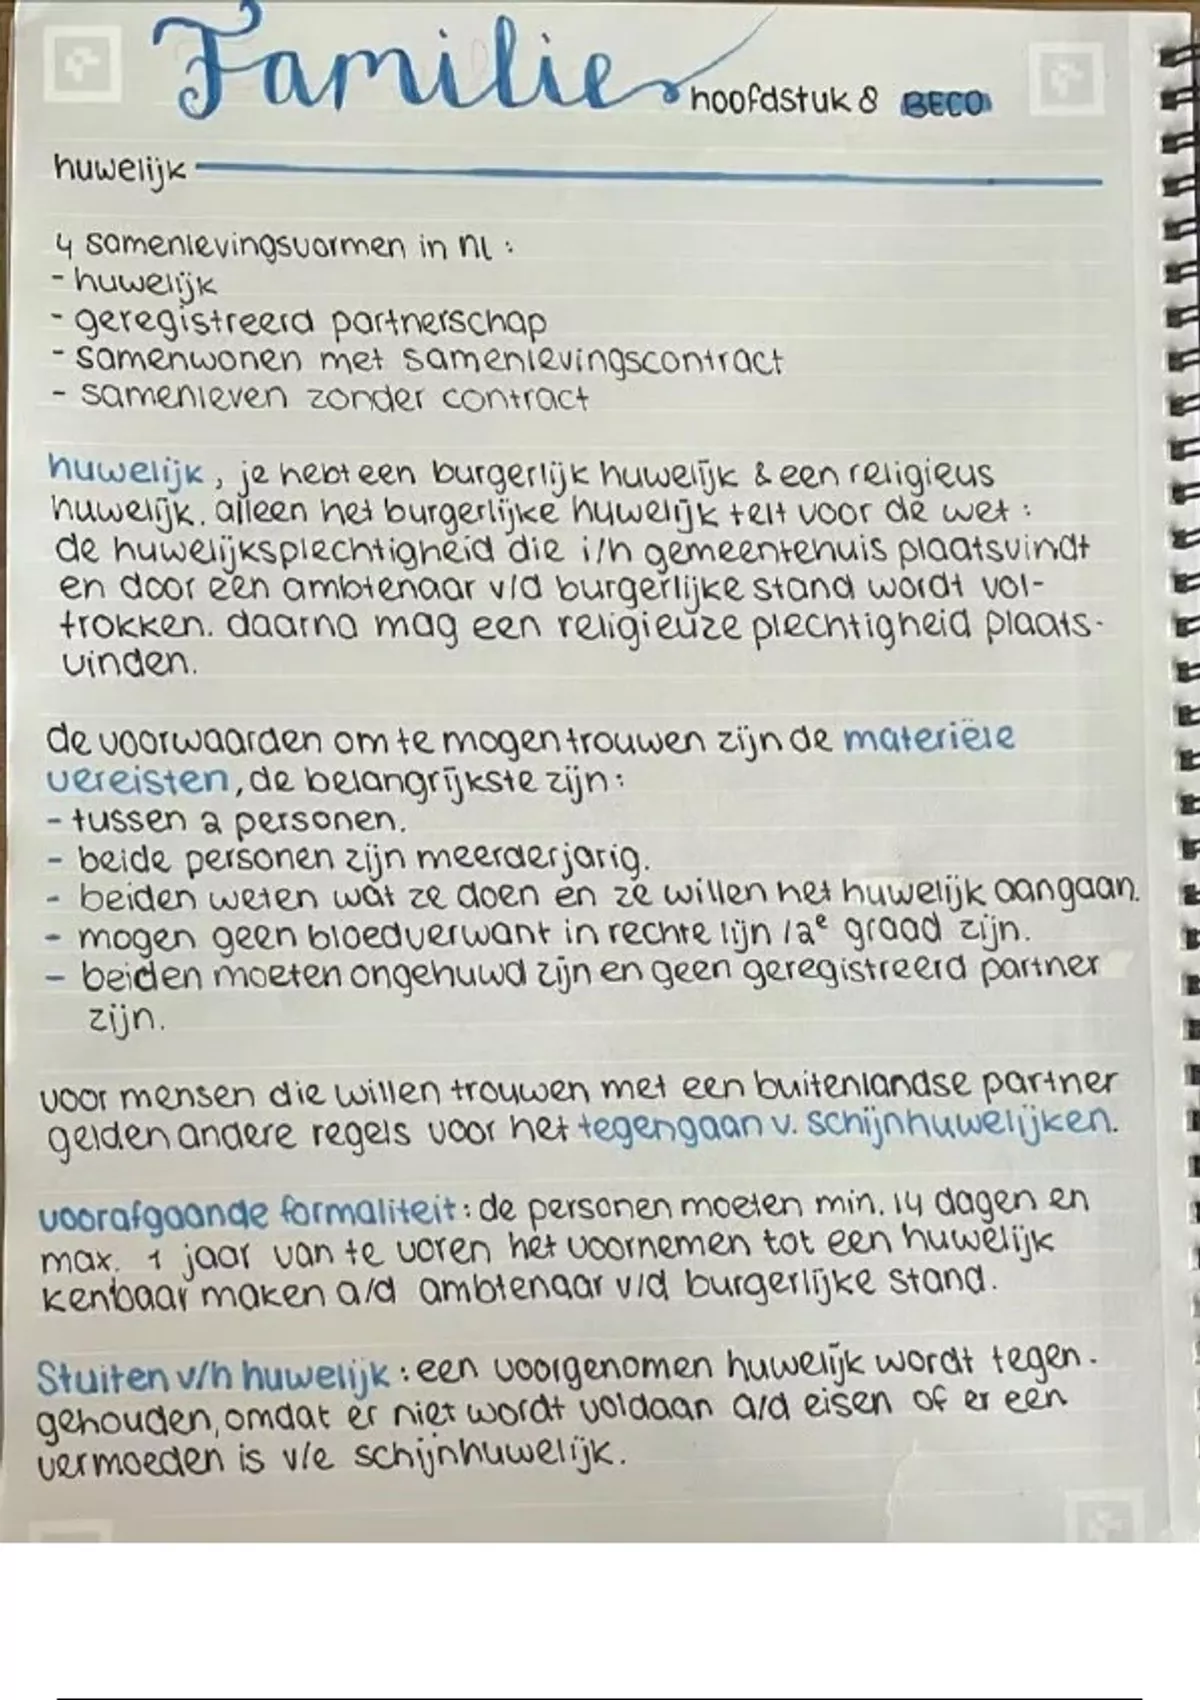 Familie hoofdstuk 8 BECO
huwelijk
4 samenlevingsvormen in nl :
- huwelijk
- geregistreerd partnerschap
- samenwonen met samenlevingscontract
- samenleven zonder contract
huwelijk, je hebt een burgerlijk huwelijk & een religieus
huwelijk. alleen het burgerlijke huwelijk telt voor de wet :
de huwelijksplechtigheid die i/h gemeentehuis plaatsvindt
en door een ambtenaar v/d burgerlijke stand wordt vol-
trokken. daarna mag een religieuze plechtigheid plaats-
vinden.
de voorwaarden om te mogen trouwen zijn de materiële
vereisten, de belangrijkste zijn:
- tussen 2 personen.
- beide personen zijn meerderjarig.
- beiden weten wat ze doen en ze willen het huwelijk aangaan.
- mogen geen bloedverwant in rechte lijn / 2e graad zijn.
- beiden moeten ongehuwd zijn en geen geregistreerd partner
zijn.
voor mensen die willen trouwen met een buitenlandse partner
gelden andere regels voor het tegengaan v. schijnhuwelijken.
voorafgaande formaliteit: de personen moeten min. 14 dagen en
max. 1 jaar van te voren het voornemen tot een huwelijk
kenbaar maken a/d ambtenaar v/d burgerlijke stand.
Stuiten v/h huwelijk: een voorgenomen huwelijk wordt tegen-
gehouden, omdat er niet wordt voldaan a/d eisen of er een
vermoeden is v/e schijnhuwelijk.